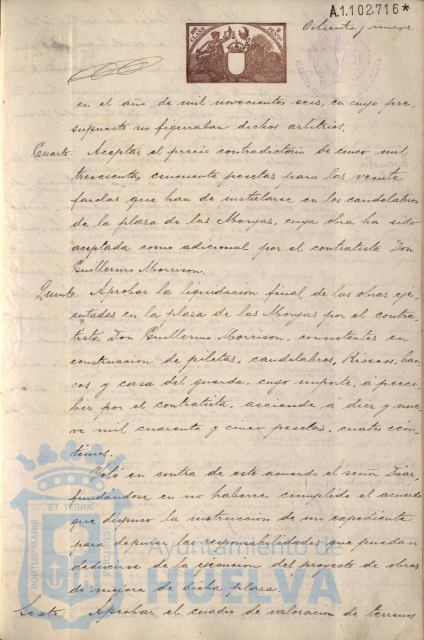 A.1.102.716*
Ochenta y nueve
en el año de mil novecientos seis, en cuyo pre-
supuesto no figuraban dichos arbitrios.
Cuarto: Aceptar el precio contradictorio de cinco mil
trescientas cincuenta pesetas para las veinte
farolas que han de instalarse en los candelabros
de la plaza de las Monjas, cuya obra ha sido
aceptada como adicional por el contratista Don
Guillermo Morrison.
Quinto. Aprobar la liquidación final de las obras eje-
cutadas en la plaza de las Monjas por el contra-
tista Don Guillermo Morrison, consistentes en
construccion de piletas, candelabros, Kioscos, ban-
cos y casa del guarda, cuyo importe, a perci-
bir por el contratista, asciende á diez y nue-
ve mil cuarenta y cinco pesetas, cuatro cén-
timos.
Votó en contra de este acuerdo el señor Diaz,
fundandose en no haberse cumplido el acuerdo
que dispuso la instruccion de un expediente
para depurar las responsabilidades que puedan
deducirse de la ejecucion del proyecto de obras
de mejora de dicha plaza.
Sexto. Aprobar el cuadro de valoracion de terrenos
ET TERRA
PORTUS MARIS
CUSTODIA
Ayuntamiento de
HUELVA